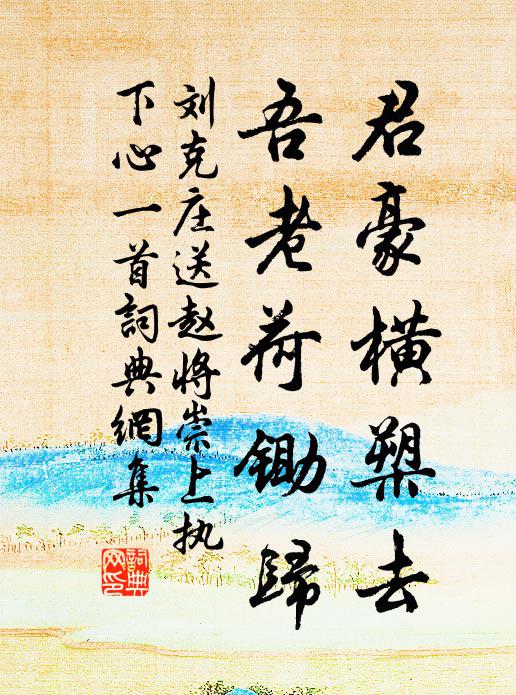 君豪橫槊去
吾老荷鋤歸
刘克庄送赵将崇上执
下心一首詞典網集
詞典网印